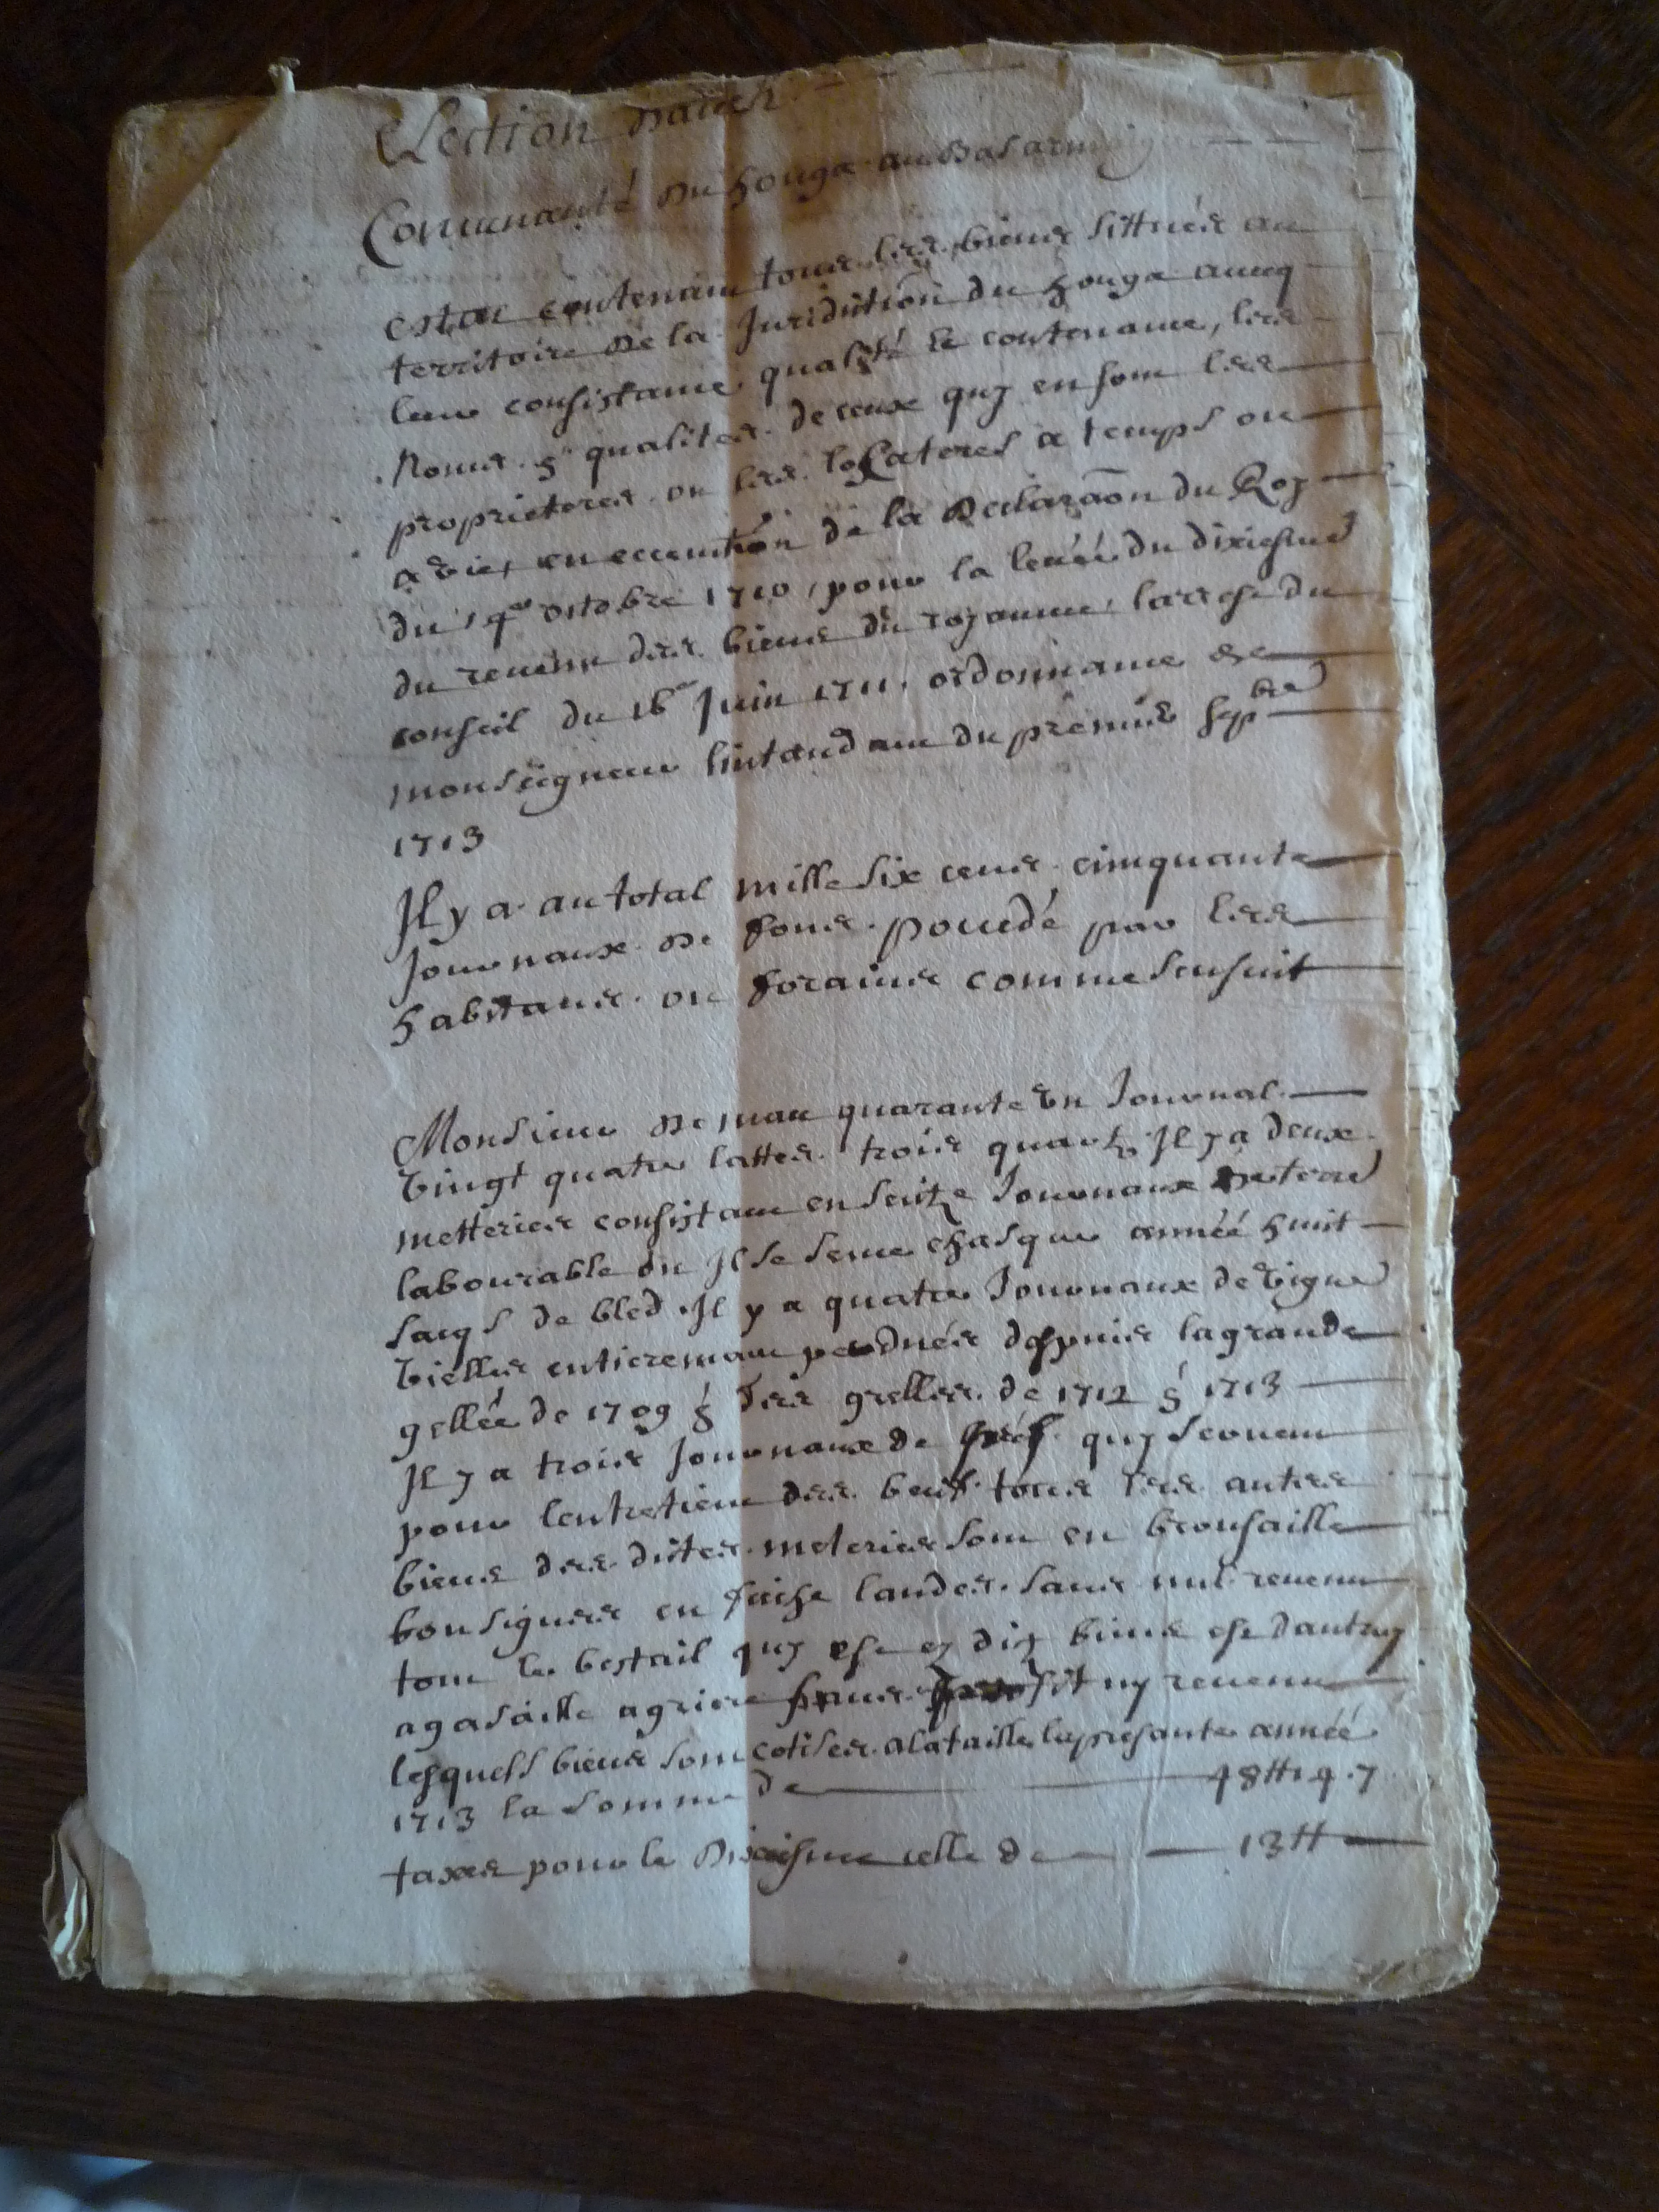 Election dauch
Comunauté du houga au bas arm
Estat contenant tous les biens sittués au
territoire de la Juridiction du houga aueq
leur consistance qualité et contenance, les
Noms & qualites de ceux quy en sont les
proprieteres ou les locateres a temps ou
a vie, en eccecution de la Declaraōn du Roy
du 14e octobre 1710, pour la leuéé du dixiesme
du reuenu des biens du royaume, larrest du
conseil du 16e Juin 1711, ordonnance de
monseigneur lintandant du premier sepbre
1713
Il y a au total mille six cens cinquante
Journaux de fons poccedé par les
habitans ou forains comme sensuit
Monsieur de mau quarante un Journal
vingt quatre lattes trois quarts Il y a deux
metteries consistant en seitze Journaux de terre
labourable ou Il se seme chasque annéé huit
sacqs de bled. Il y a quatre Journaux de vigne
vielles entieremant perdués despuis la grande
gellée de 1709 & des grelles de 1712 & 1713
Il y a trois Journaux de prés quy seruent
pour lentretient des beufs tous les autres
biens des dittes meteries sont en brousaille
bousigues en friche landes sans nul reuenu
tout le bestail quy est es dits biens est dautruy
agasaille agriere sans profit ny reuenu
lesquels biens sont cotises a la taille la presante année
1713 la somme de 48 ₶ 14.7
taxes pour le Dixiesme celle de 13 ₶